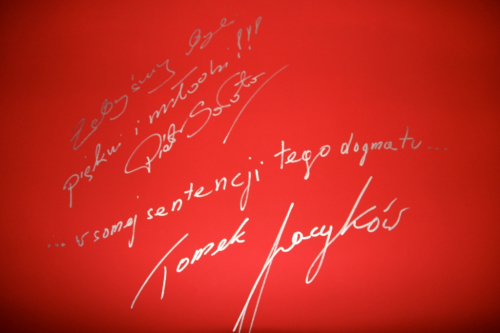 Żebyśmy byli
piękni i młodzi!!!
Piotr
... w samej sentencji tego dogmatu...
Tomek Jacyków